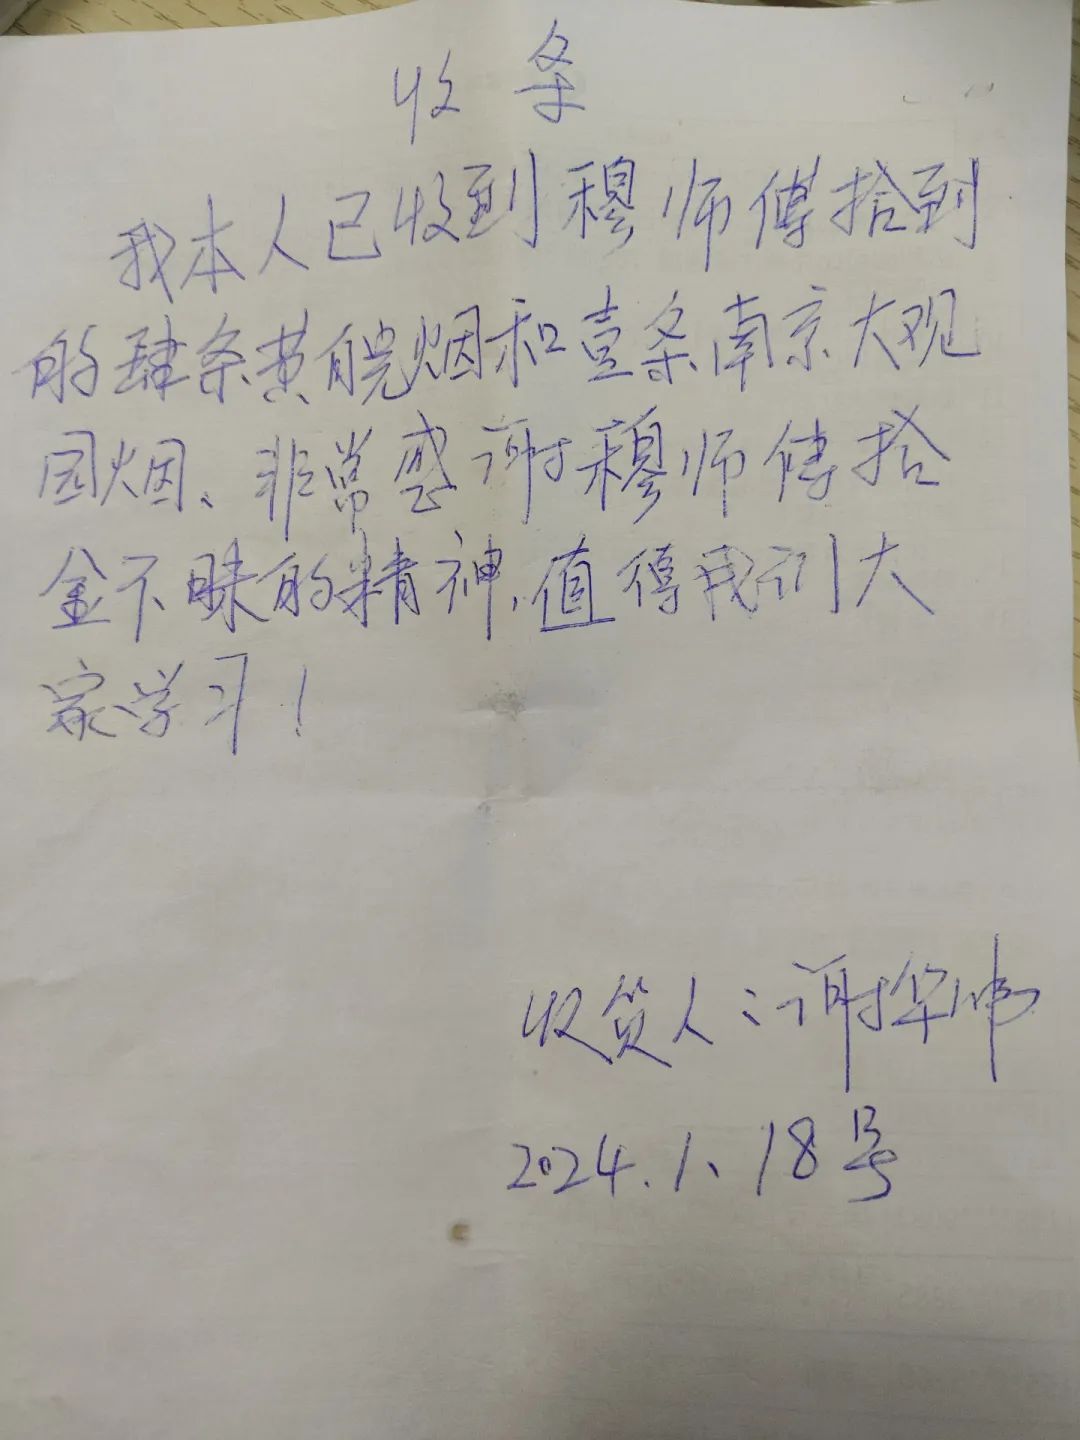 收条
我本人已收到穆师傅拾到
的肆条黄皖烟和壹条南京大观
园烟、非常感谢穆师傅拾
金不昧的精神,值得我们大
家学习!
收货人:谢华伟
2024.1、18号